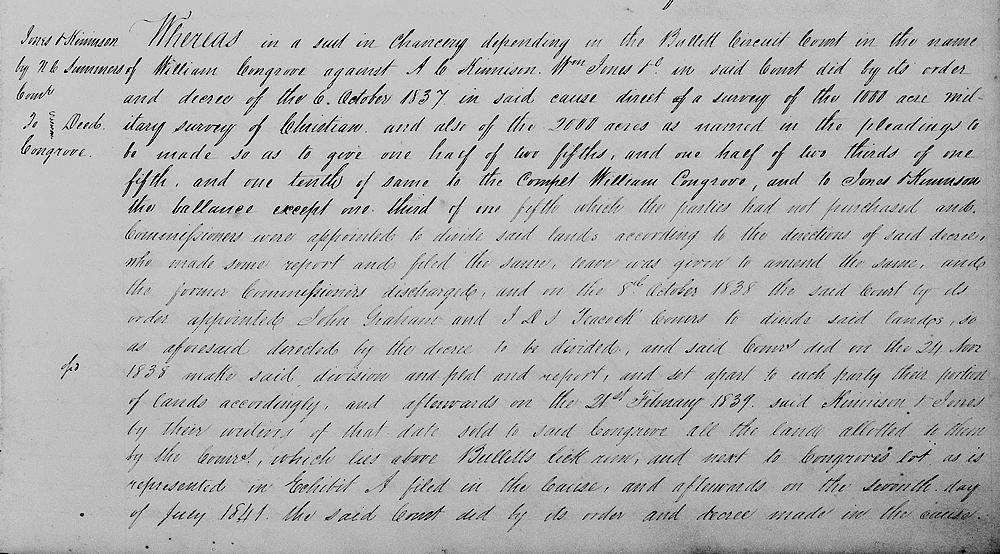 Jones & Kinnison
by N C Summers
Comr
To Deed.
Congrove.
Whereas in a suit in Chancery depending in the Bullitt Circuit Court in the name
of William Congrove against A C Kinnison. Wm Jones &c. in said Court did by its order
and decree of the 6. October 1837 in said cause direct of a survey of the 1000 acre mil-
itary survey of Christian. and also of the 2000 acres as named in the pleadings to
be made so as to give one half of two fifths, and one half of two thirds of one
fifth. and one tenth of same to the Complt William Congrove, and to Jones & Kinnison
the ballance except one third of one fifth which the parties had not purchased and.
Commissioners were appointed to divide said lands according to the directions of said decree,
who made some report and filed the same, leave was given to amend the same, and
the former Commissioners discharged, and on the 8th October 1838 the said Court by its
order appointed John Graham and J D S Peacock Comrs to divide said lands, so
as aforesaid directed by the decree to be divided, and said Comrs did on the 24 Novr
1838 make said division and plat and report, and set apart to each party their portion
of lands accordingly, and afterwards on the 21st February 1839. said Kinnison & Jones
by their writing of that date sold to said Congrove all the land allotted to them
by the Comrs, which lies above Bullitts lick run, and next to Congrove's lot, as is
represented in Exhibit A filed in the Cause, and afterwards on the seventh day
of July 1841. the said Court did by its order and decree made in the cause.